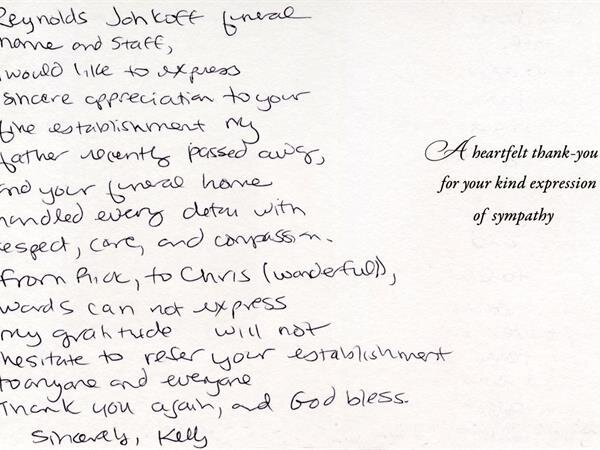 Reynolds Jonkoff funeral
home and Staff,
I would like to express
sincere appreciation to your
fine establishment my
father recently passed away,
and your funeral home
handled every detail with
respect, care, and compassion.
From Rick, to Chris (wonderful),
words can not express
my gratitude will not
hesitate to refer your establishment
to anyone and everyone
Thank you again, and God bless.
Sincerely, Kelly
A heartfelt thank-you
for your kind expression
of sympathy